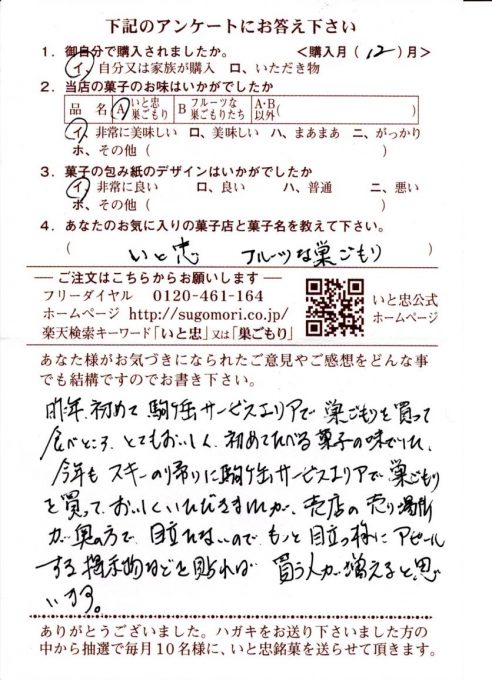 下記のアンケートにお答え下さい
1．御自分で購入されましたか。 ＜購入月（12）月＞
イ、自分又は家族が購入 ロ、いただき物
2．当店の菓子のお味はいかがでしたか
品 名 A いと忠巣ごもり B フルーツな巣ごもりたち A･B以外（ ）
イ、非常に美味しい ロ、美味しい ハ、まあまあ ニ、がっかり
ホ、その他（ ）
3．菓子の包み紙のデザインはいかがでしたか
イ、非常に良い ロ、良い ハ、普通 ニ、悪い
ホ、その他（ ）
4．あなたのお気に入りの菓子店と菓子名を教えて下さい。
（ いと忠 フルーツな巣ごもり ）
― ご注文はこちらからお願いします ―
フリーダイヤル 0120-461-164
ホームページ http://sugomori.co.jp/
楽天検索キーワード「いと忠」又は「巣ごもり」
いと忠公式
ホームページ
あなた様がお気づきになられたご意見やご感想をどんな事
でも結構ですのでお書き下さい。
昨年、初めて駒ヶ岳サービスエリアで巣ごもりを買って
食べところ、とてもおいしく、初めてたべる菓子の味でした。
今年もスキーの帰りに駒ヶ岳サービスエリアで巣ごもり
を買って、おいしくいただきましたが、売店の売り場所
が奥の方で、目立たないので、もっと目立つ様にアピール
する掲示物などを貼れば 買う人が増えると思
います。
ありがとうございました。ハガキをお送り下さいました方の
中から抽選で毎月10名様に、いと忠銘菓を送らせて頂きます。